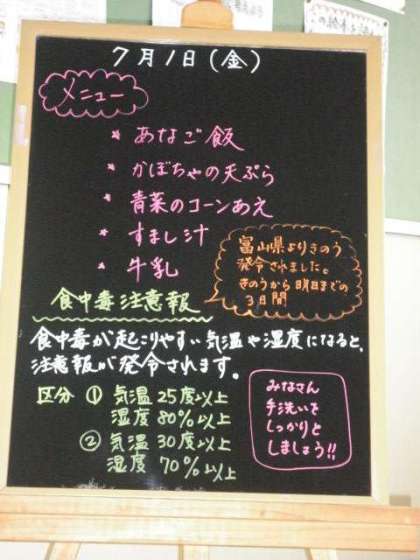 7月1日(金)
メニュー
* あなご飯
* かぼちゃの天ぷら
* 青菜のコーンあえ
* すまし汁
* 牛乳
富山県よりきのう
発令されました。
きのうから明日までの
3日間
食中毒注意報
食中毒が起こりやすい気温や湿度になると、
注意報が発令されます。
区分 ① 気温 25度以上
湿度 80%以上
② 気温 30度以上
湿度 70%以上
みなさん
手洗いを
しっかりと
しましょう!!